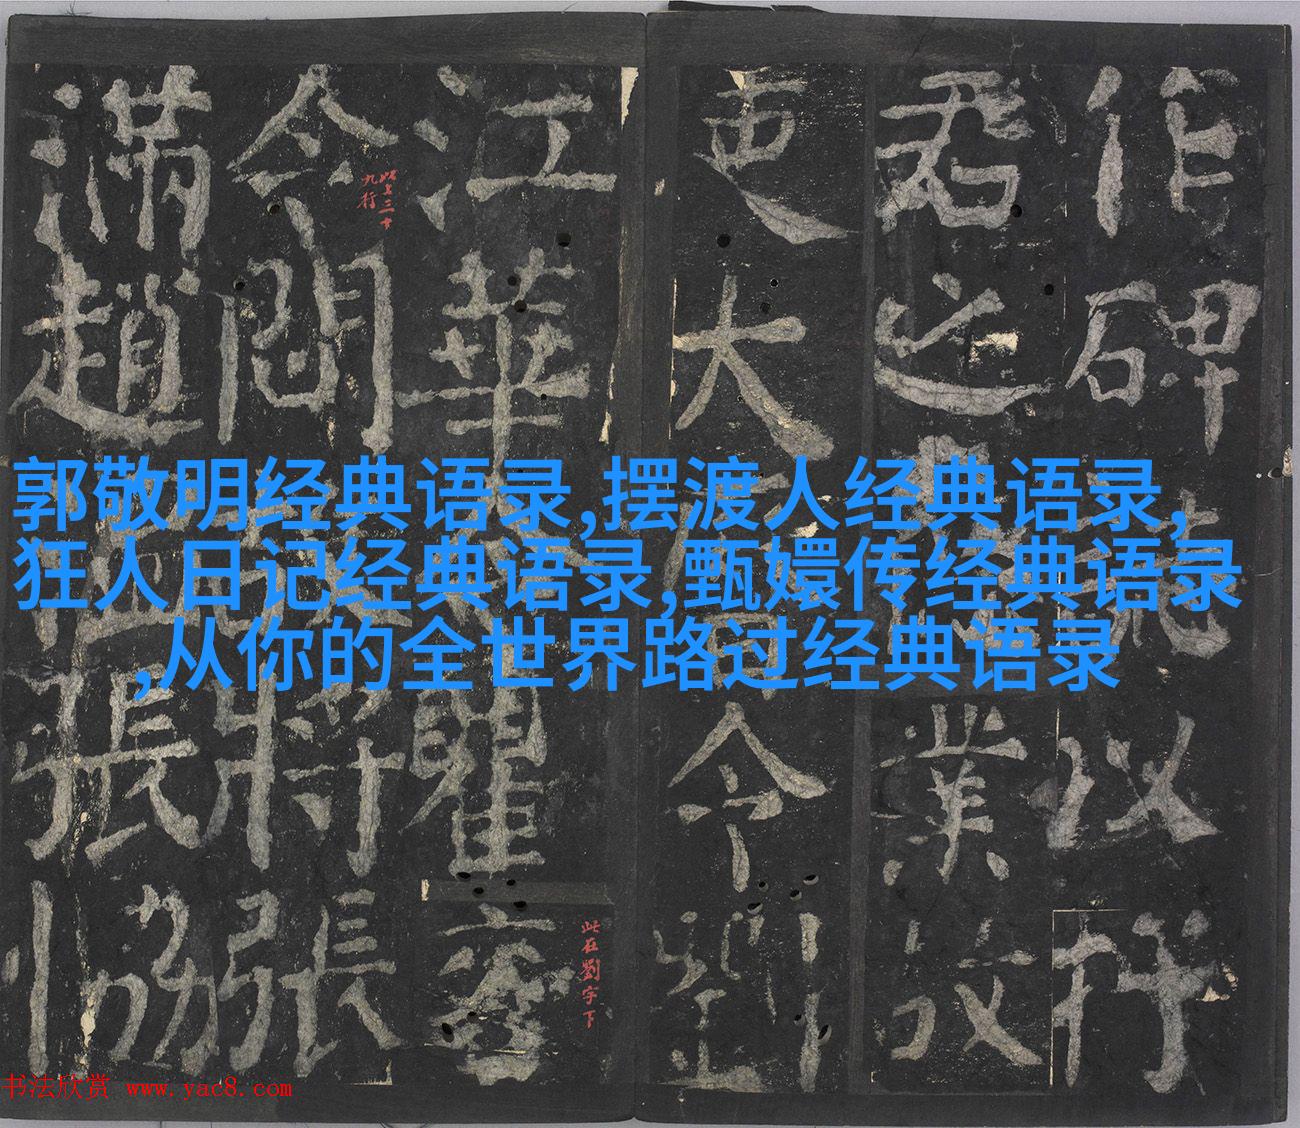 郭敬明经典语录,摆渡人经典语录,
狂人日记经典语录,甄嬛传经典语录
,从你的全世界路过经典语录
作碑
以行
君之
業故
吏大
令劉
江華
瞿
令閻
將張
滿趙
張協
此上三十
九行
此在劉字下
书法欣赏 www.yac8.com